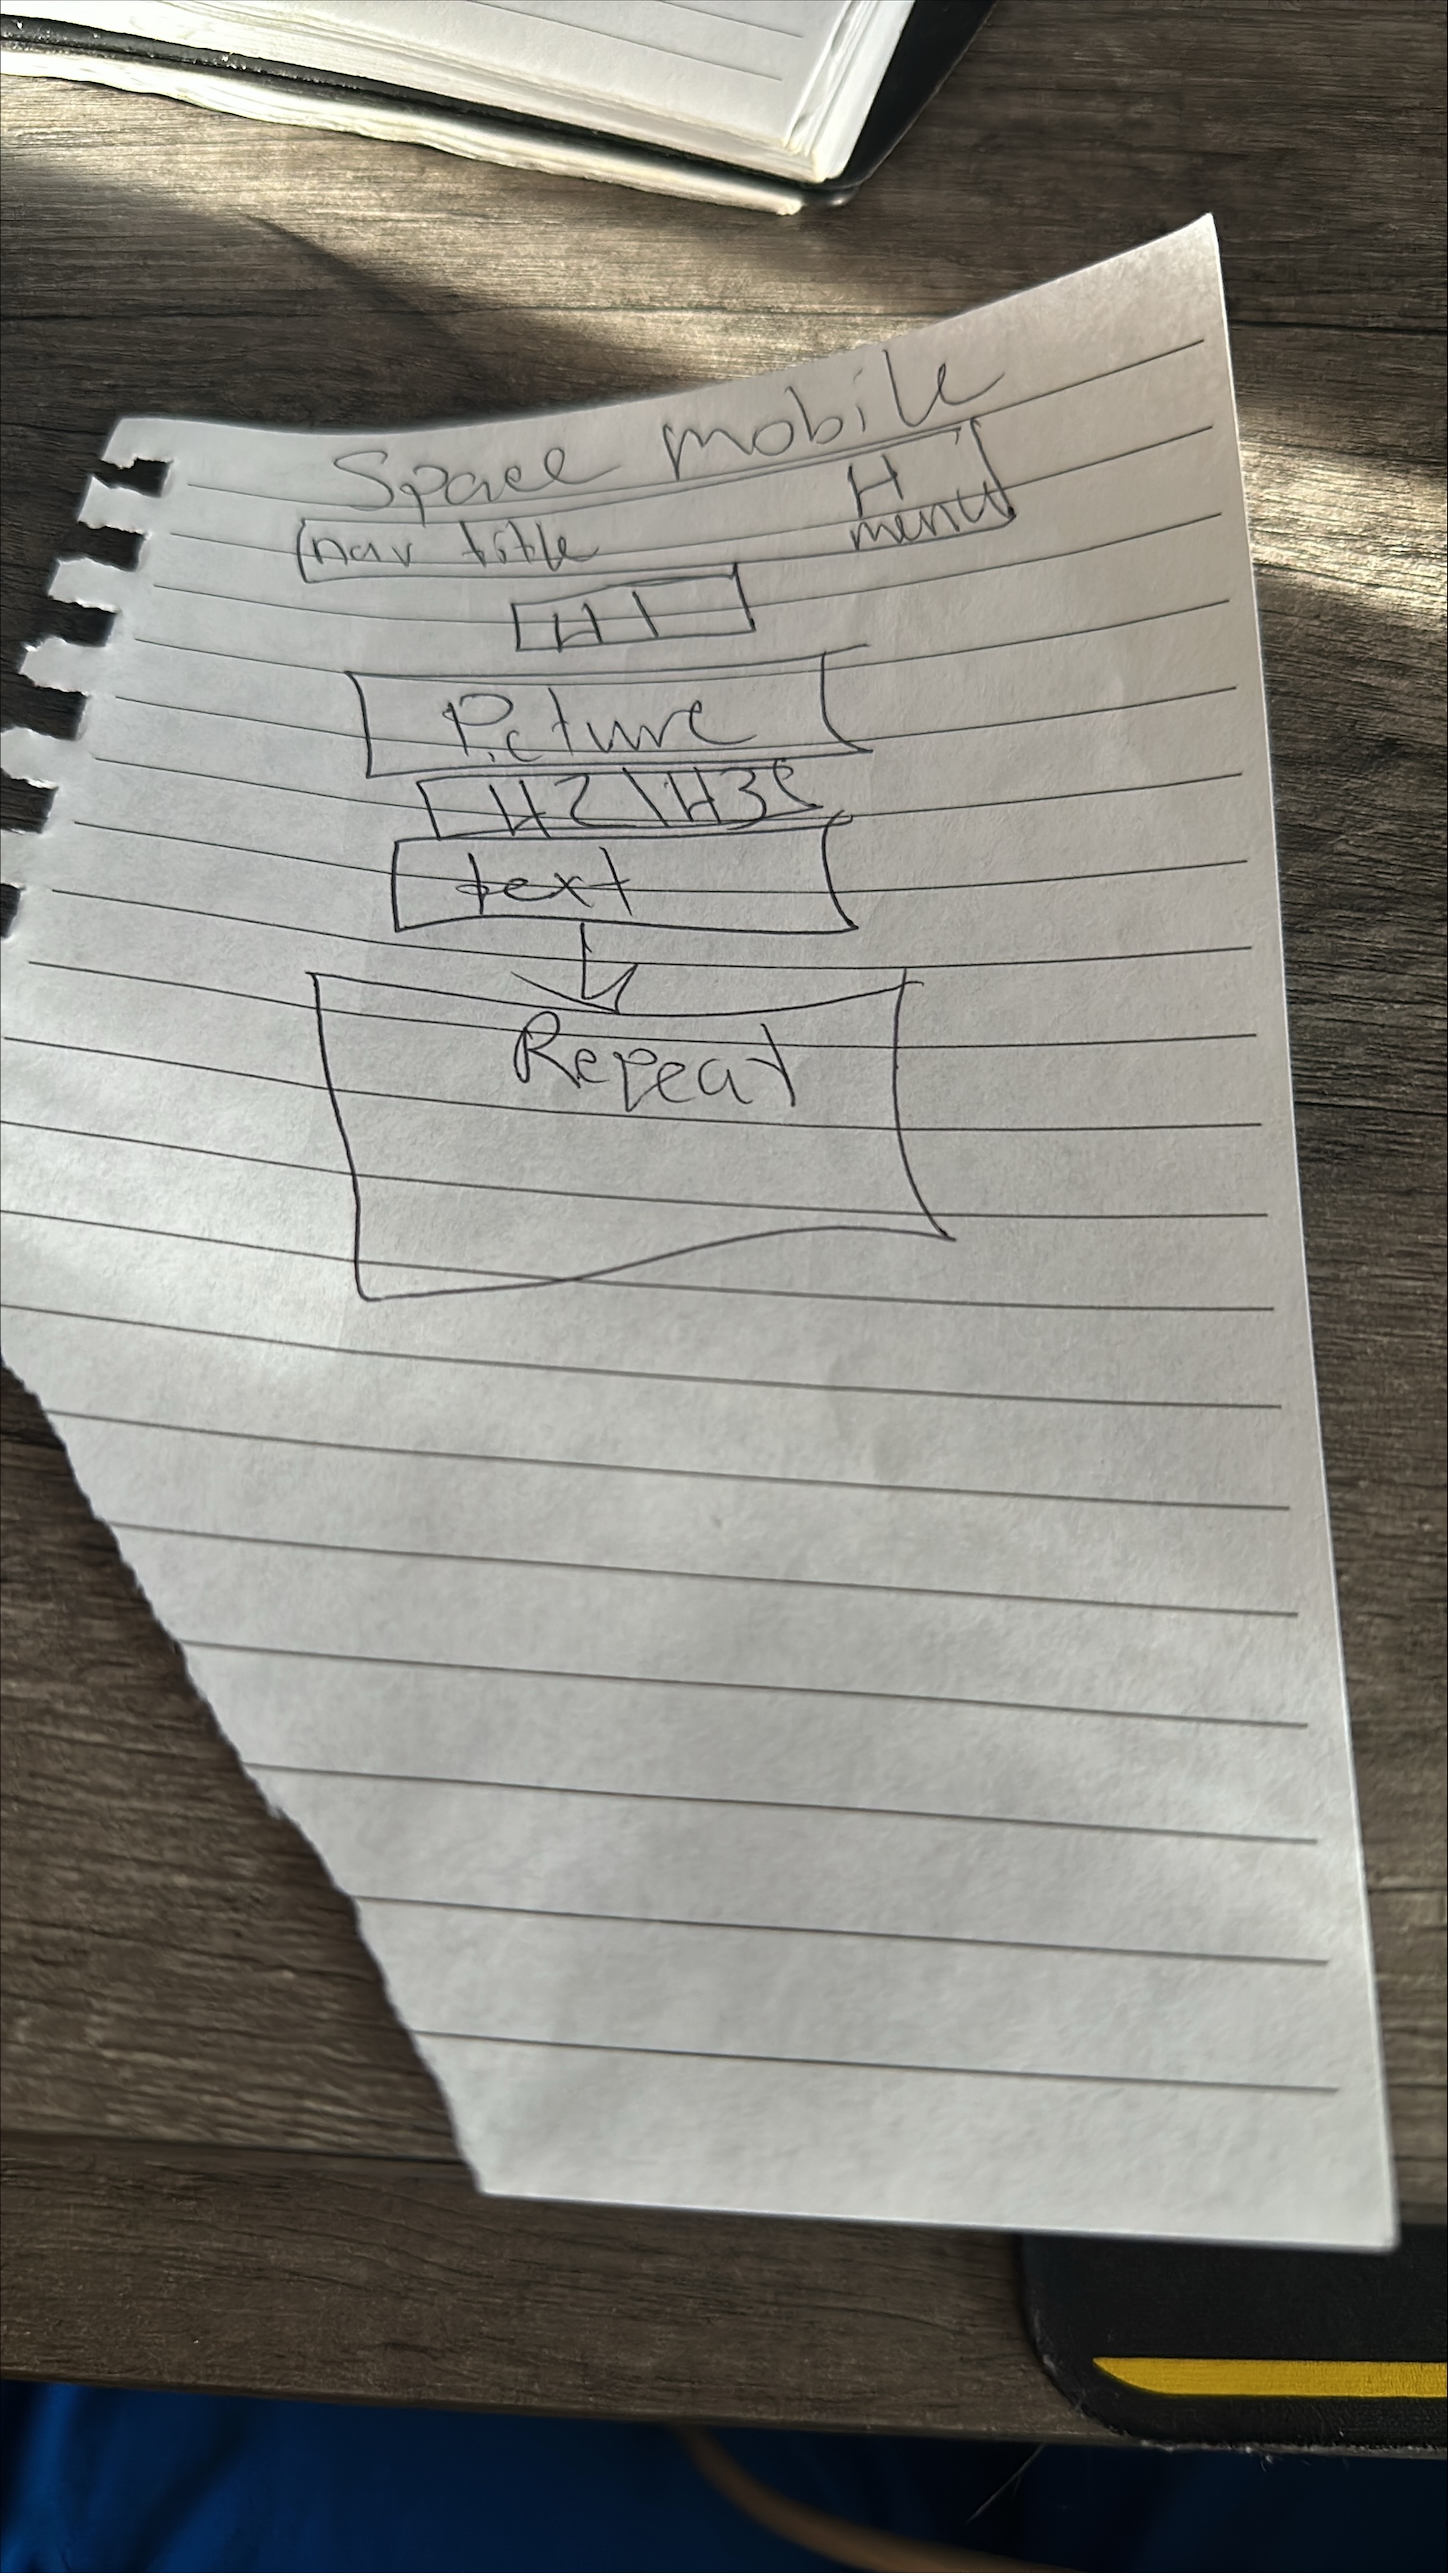 Space mobile
nav title H menu
H1
Picture
H2 \ H3s
text
Repeat